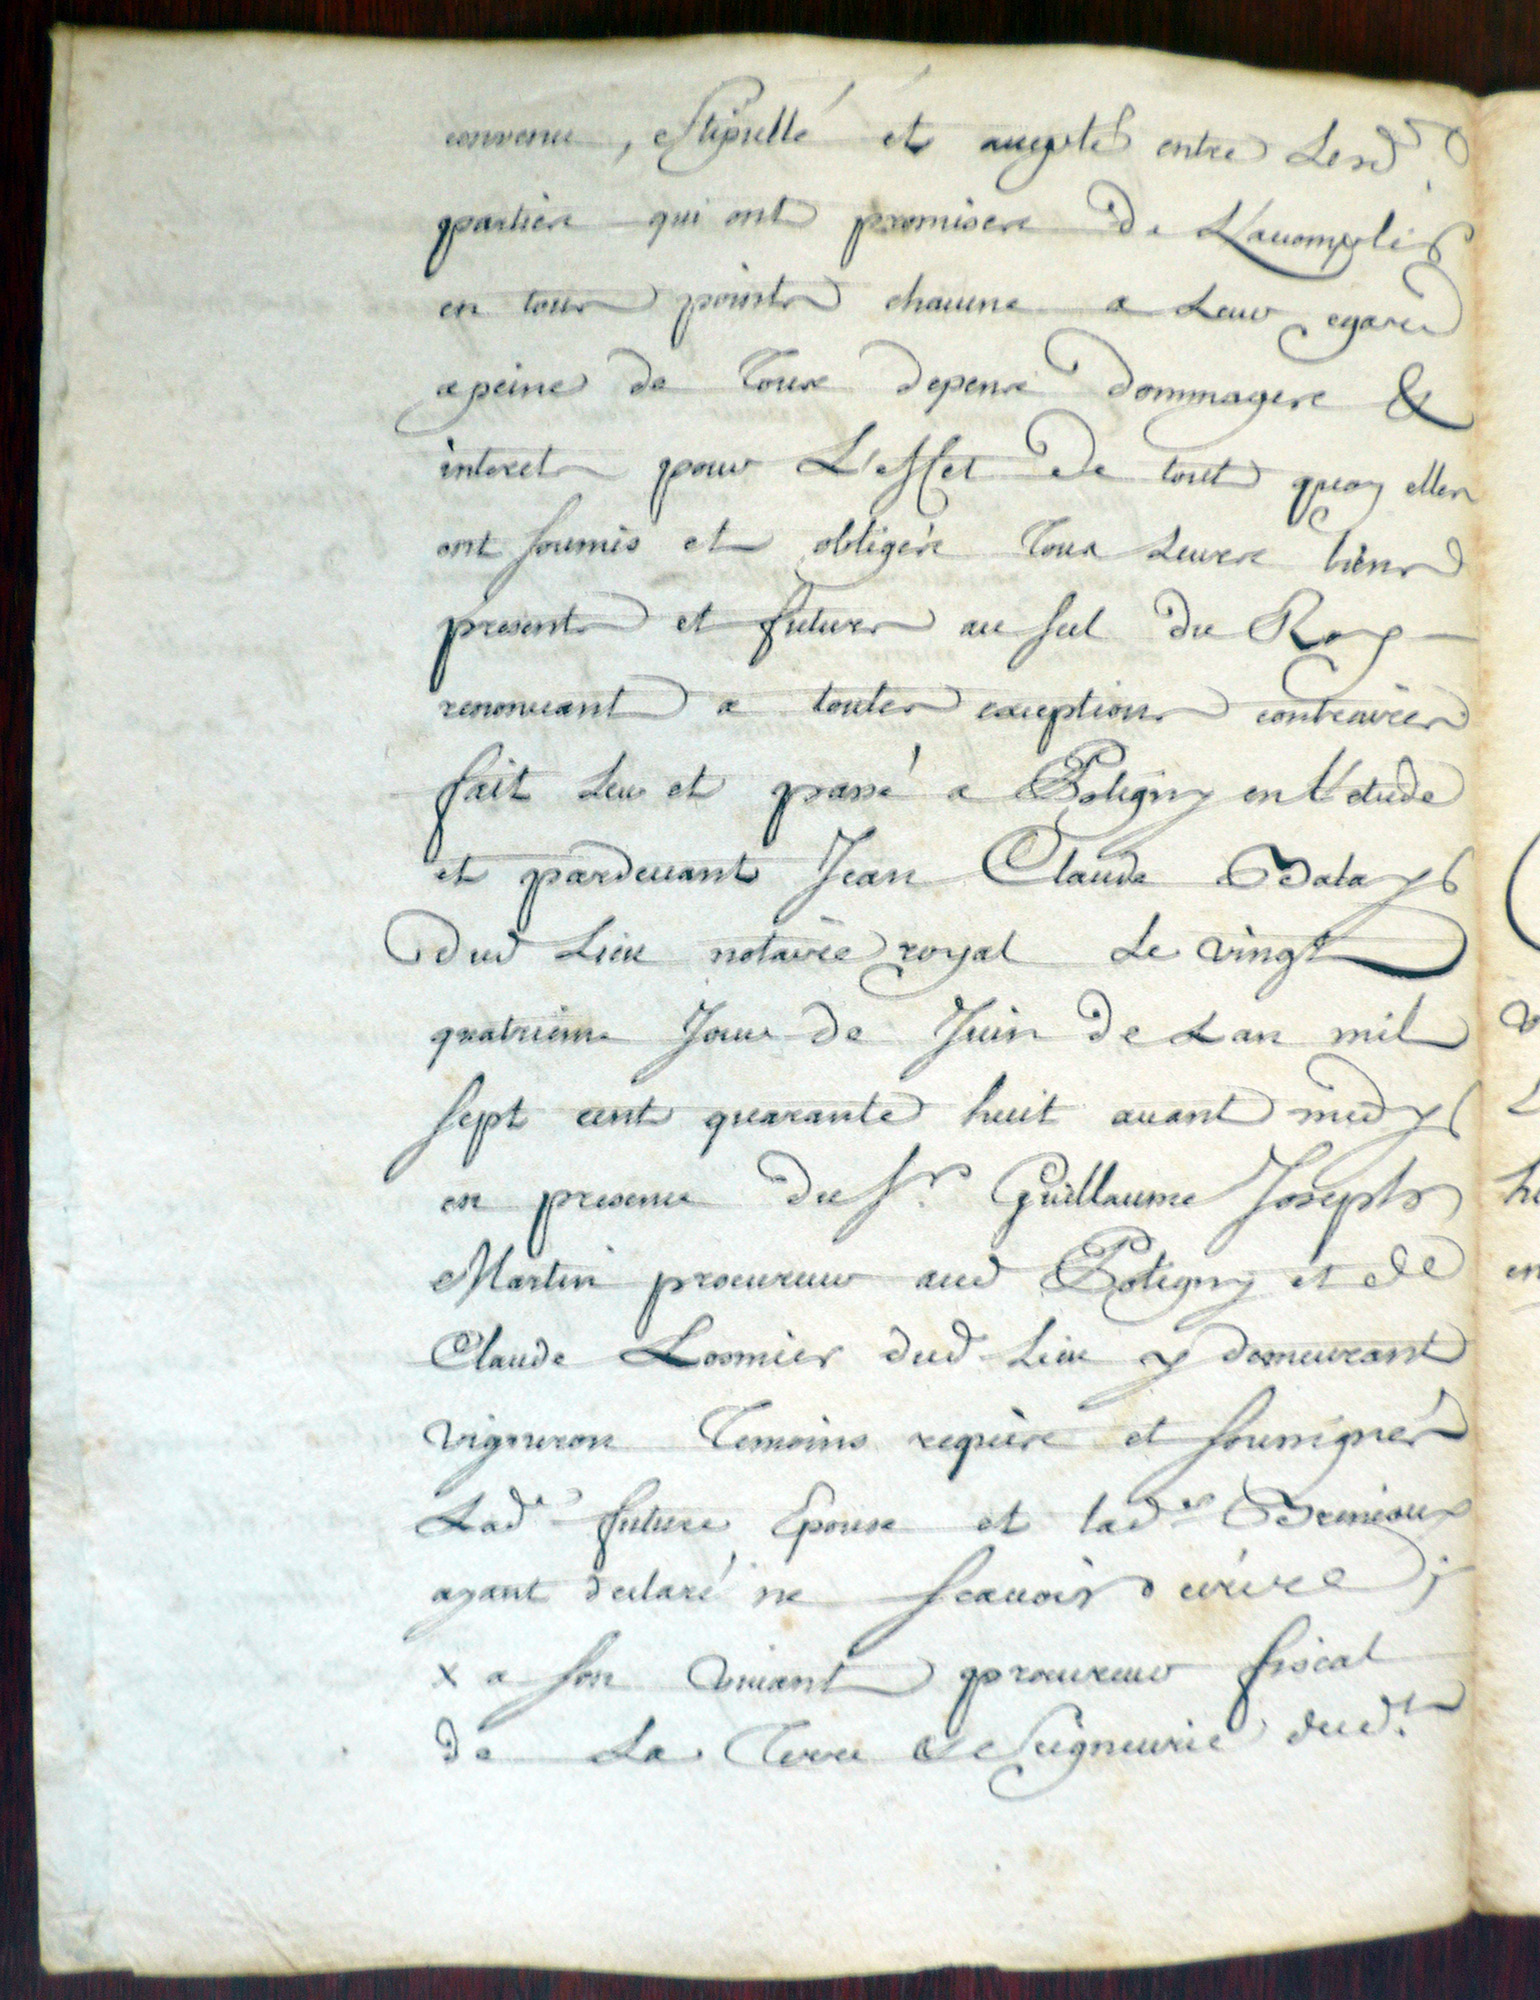 convenu, estipullé et accepté entre Lesd.
parties qui ont promises de L'accomplir
en tous points chacune a Leur egard
a peine de tous depens dommages &
interets pour L'effet de tout quoy elles
ont soumis et obligés tous Leurs biens
presents et futurs au scel du Roy
renonceant a toutes exceptions contraires
fait Leu et passé a Poligny en L'etude
et pardevant Jean Claude Batay
dud Lieu notaire royal Le vingt
quatrieme Jour de Juin de Lan mil
sept cent quarante huit avant midy
en presence du Sr. Guillaume Joseph
Martin procureur aud Poligny et de
Claude Lormier dud Lieu y demeurant
vigneron temoins requis et soussignés
Lade future Epouse et lade
ayant declaré ne scavoir ecrire ;
x a son vivant procureur fiscal
de La Terre & Seigneurie dud.t